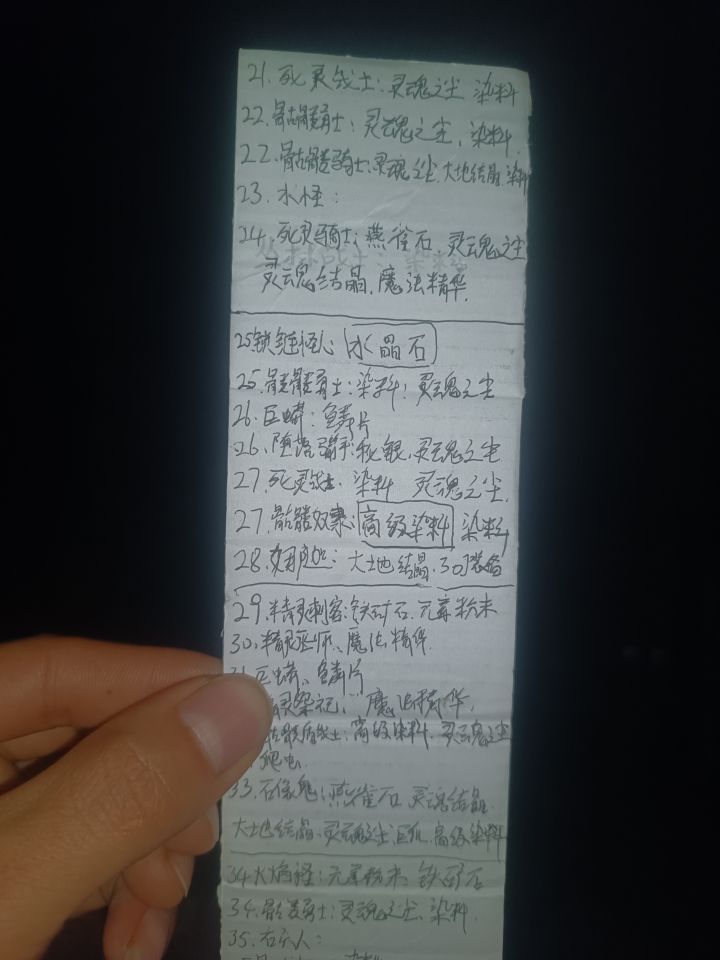 21.死灵战士:灵魂之尘 染料
22.骷髅勇士:灵魂之尘、染料.
22.骷髅骑士:灵魂之尘.大地结晶.染料
23.水怪:
24.死灵骑士:燕雀石.灵魂之尘
灵魂结晶.魔法精华.
25.锁链怪:水晶石
25.骷髅勇士:染料:灵魂之尘
26.巨蟒:鳞片
26.堕落骑士:秘银.灵魂之尘
27.死灵战士.染料 灵魂之尘.
27.骷髅奴隶:高级染料 染料
28.大地结晶.30装备
29.精灵刺客:铁矿石.元素粉末
30.精灵巫师、魔法精华.
巨蟒、鳞片
灵祭祀:魔法精华.
战士:高级染料.灵魂之尘
爬虫
33.石像鬼:燕雀石 灵魂结晶.
大地结晶.灵魂之尘 高级染料
34.火焰怪:元素粉末、铁矿石
34.骷髅勇士:灵魂之尘、染料.
35.石头人: